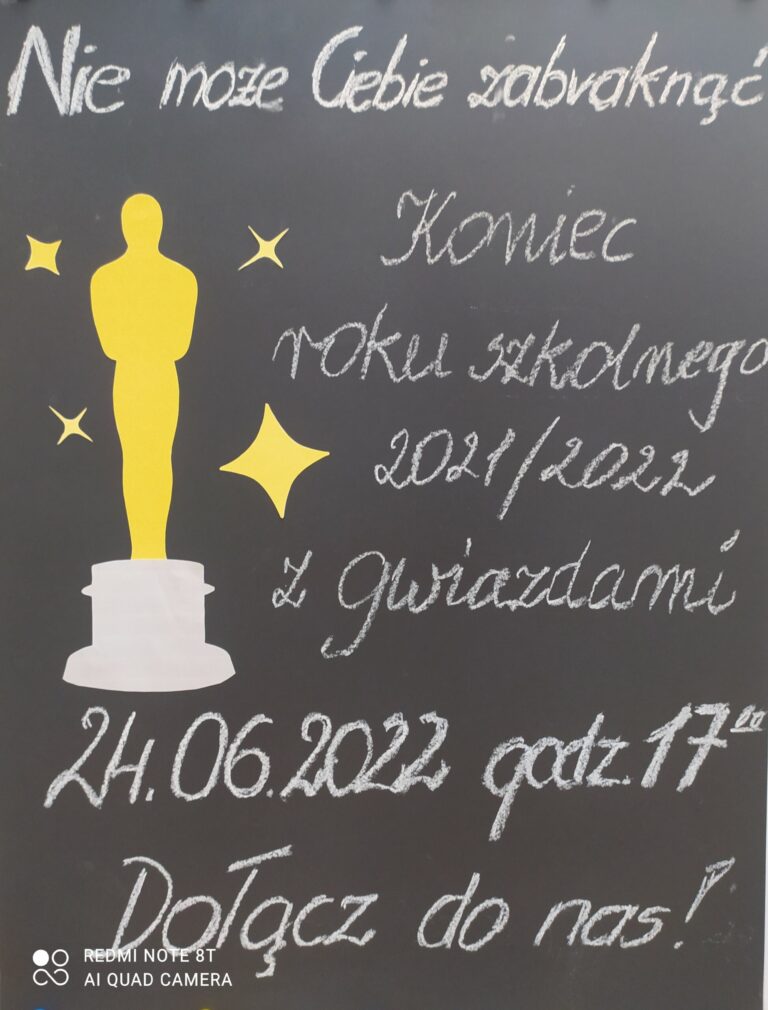 Nie może Ciebie zabraknąć
Koniec
roku szkolnego
2021/2022
z gwiazdami
24.06.2022 godz. 17⁰⁰
Dołącz do nas!
REDMI NOTE 8T
AI QUAD CAMERA